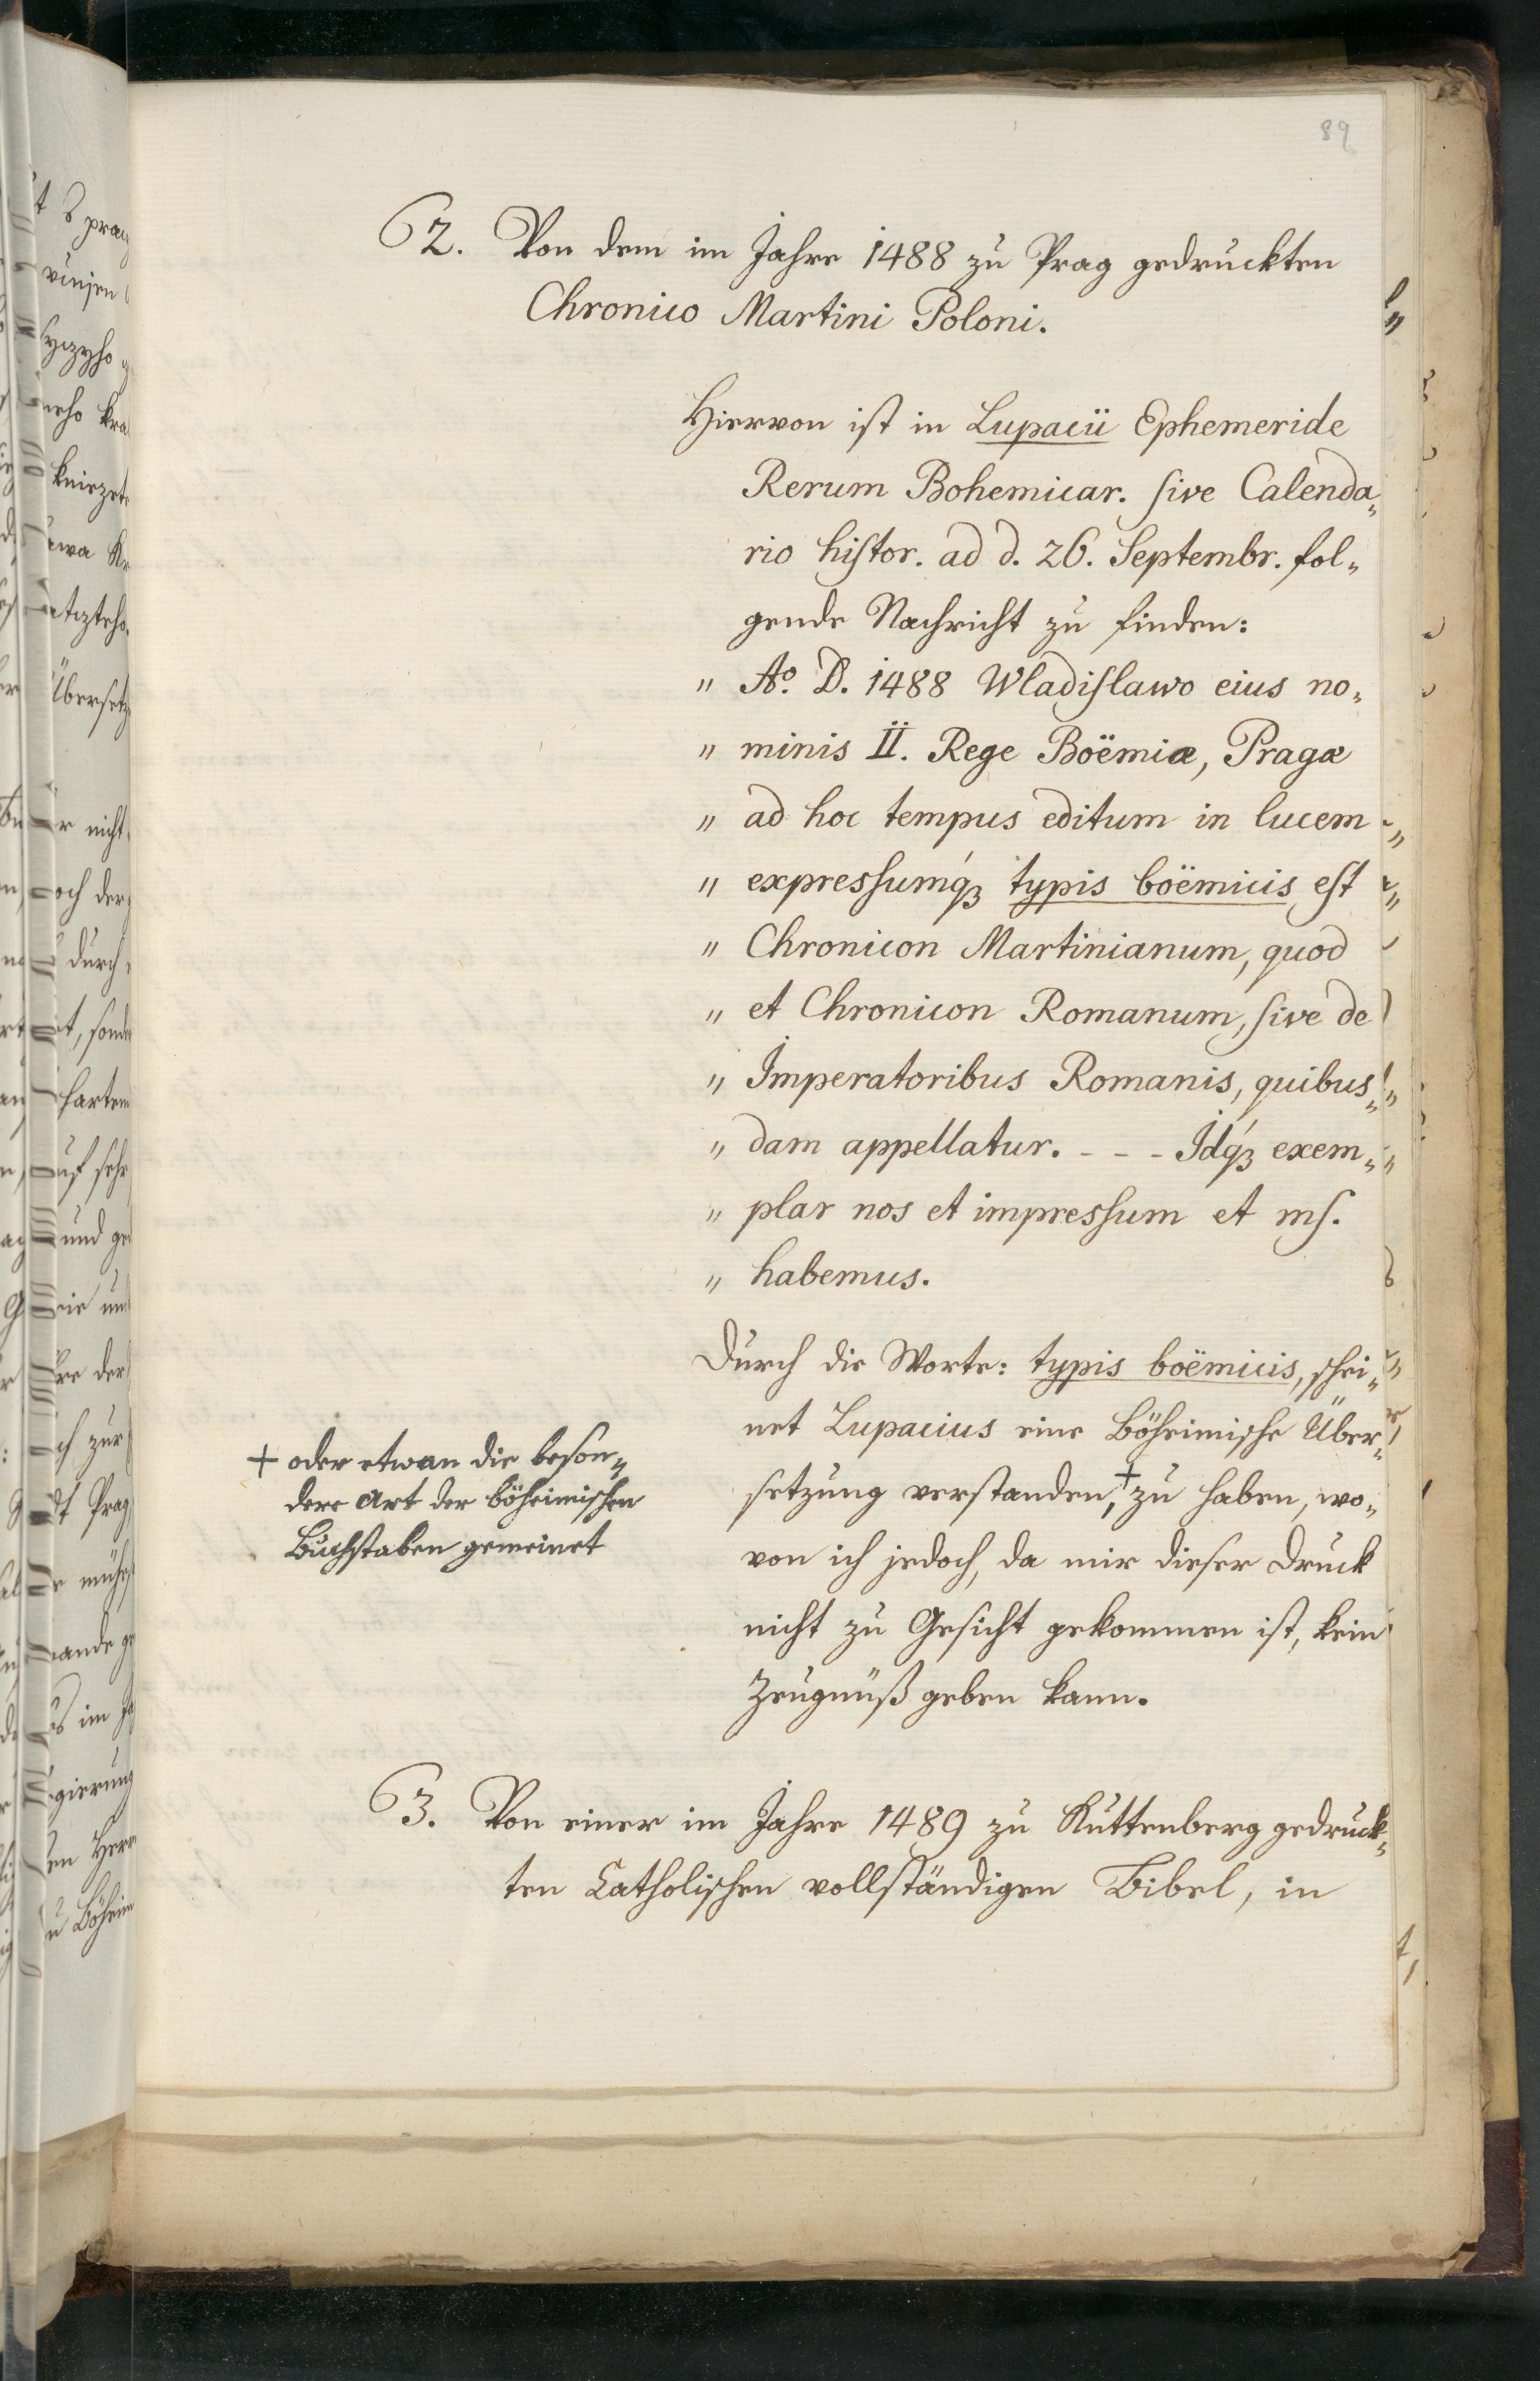 89
62. Von dem im Jahre 1488 zu Prag gedruckten
Chronico Martini Poloni.
Hiervon ist in Lupacii Ephemeride
Rerum Bohemicar. ſive Calenda„
rio hiſtor. ad d. 26. Septembr. fol„
gende Nachricht zu finden:
„ Aº. D. 1488 Wladiſlawo eius no„
„ minis II. Rege Boëmiæ, Pragæ
„ ad hoc tempus editum in lucem
„ expresſumq́ꝫ typis boëmicis eſt
„ Chronicon Martinianum, quod
„ et Chronicon Romanum, ſive de
„ Imperatoribus Romanis, quibus„
„ dam appellatur. - - - Idq́ꝫ exem„
„ plar nos et impresſum et mſ.
„ habemus.
Durch die Worte: typis boëmicis, schei„
net Lupacius eine Böheimische Über„
setzung verstanden,+ zu haben, wo„
von ich jedoch, da mir dieser Druck
nicht zu Gesicht gekommen ist, kein
Zeugnüß geben kann.
+ oder etwan die beson„
dere Art der böheimischen
Buchstaben gemeinet
63. Von einer im Jahre 1489 zu Kuttenberg gedruck„
ten Catholischen vollständigen Bibel, in